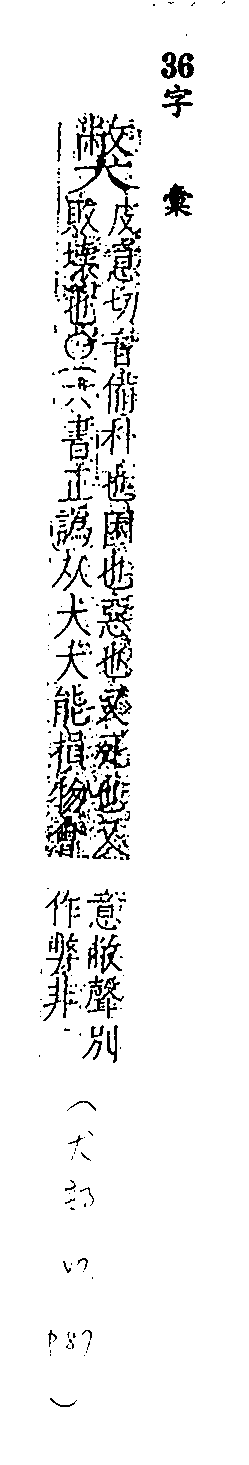 36字 彙
獘
皮意切音備朴也困也惡也又死也又
敗壞也○六書正譌从犬犬能損物會
意敝聲別
作弊非
（犬部 P87）